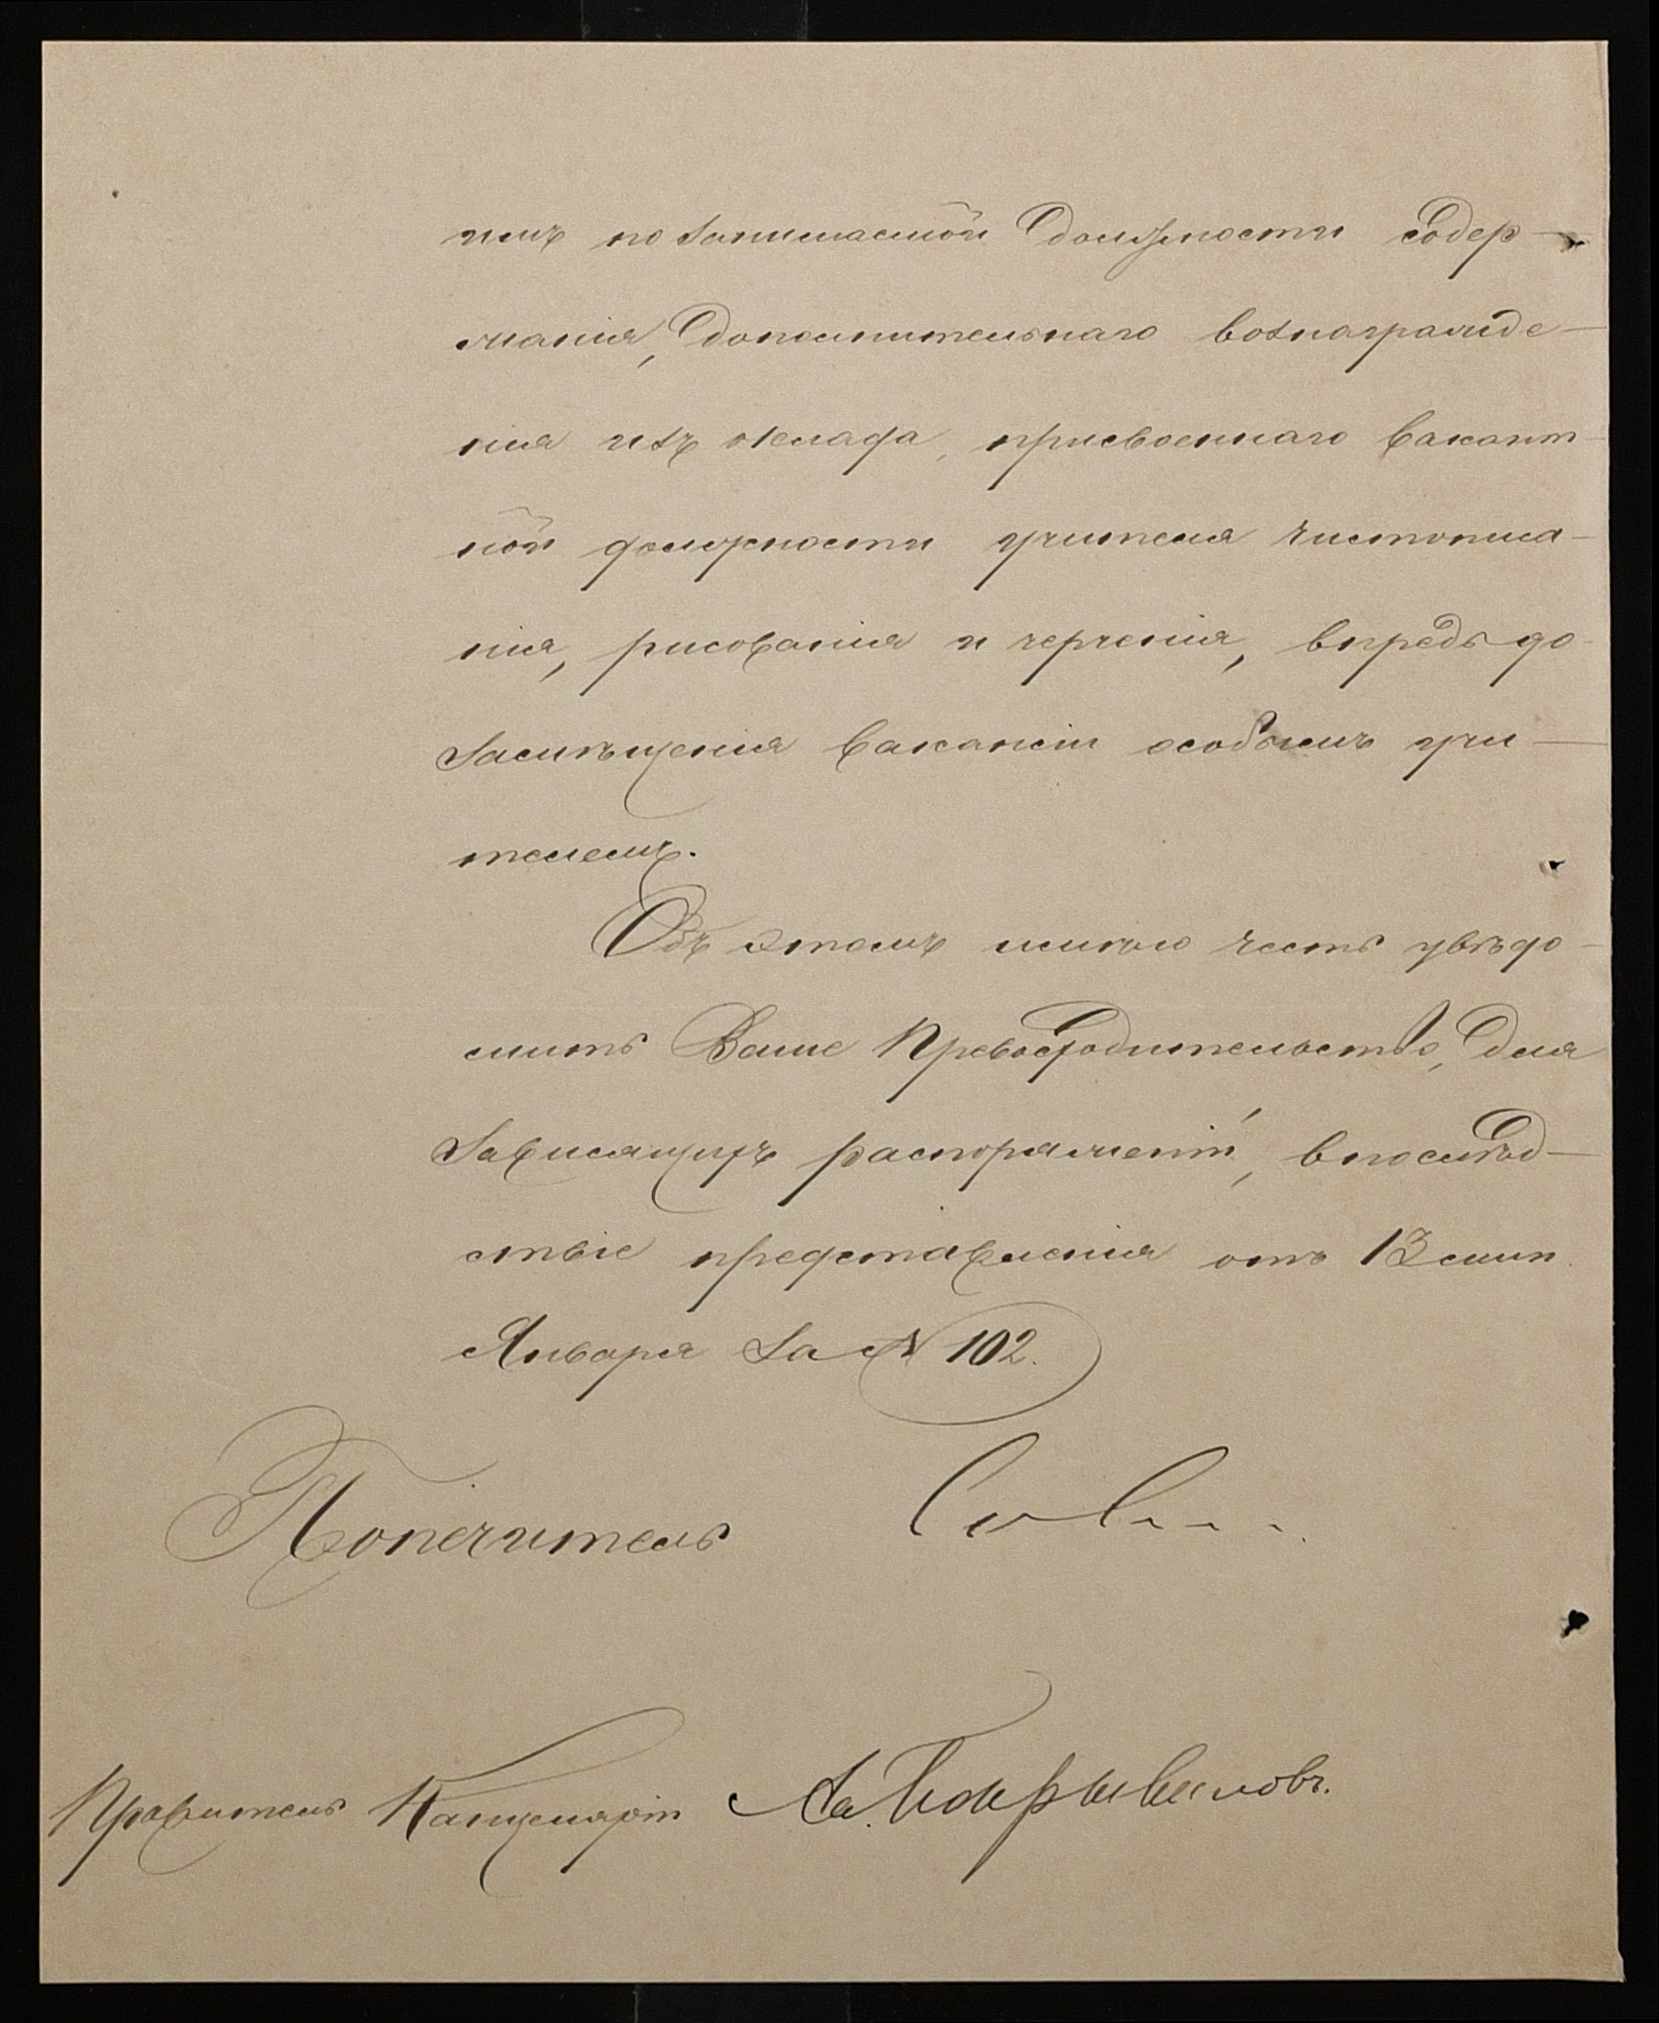 имъ по занимаемой должности содер-
жанія, дополнительнаго вознагражде-
нія изъ оклада, присвоеннаго вакант-
ной должности учителя чистописа-
нія, рисованія и черченія, впредь до
замѣщенія вакансіи особымъ учи-
телемъ.
Объ этомъ имѣю честь увѣдо-
мить Ваше Превосходительство, для
зависящихъ распоряженій, вслѣд-
ствіе представленія отъ 13 мин.
Января за № 102.
Попечитель
Правитель Канцеляріи